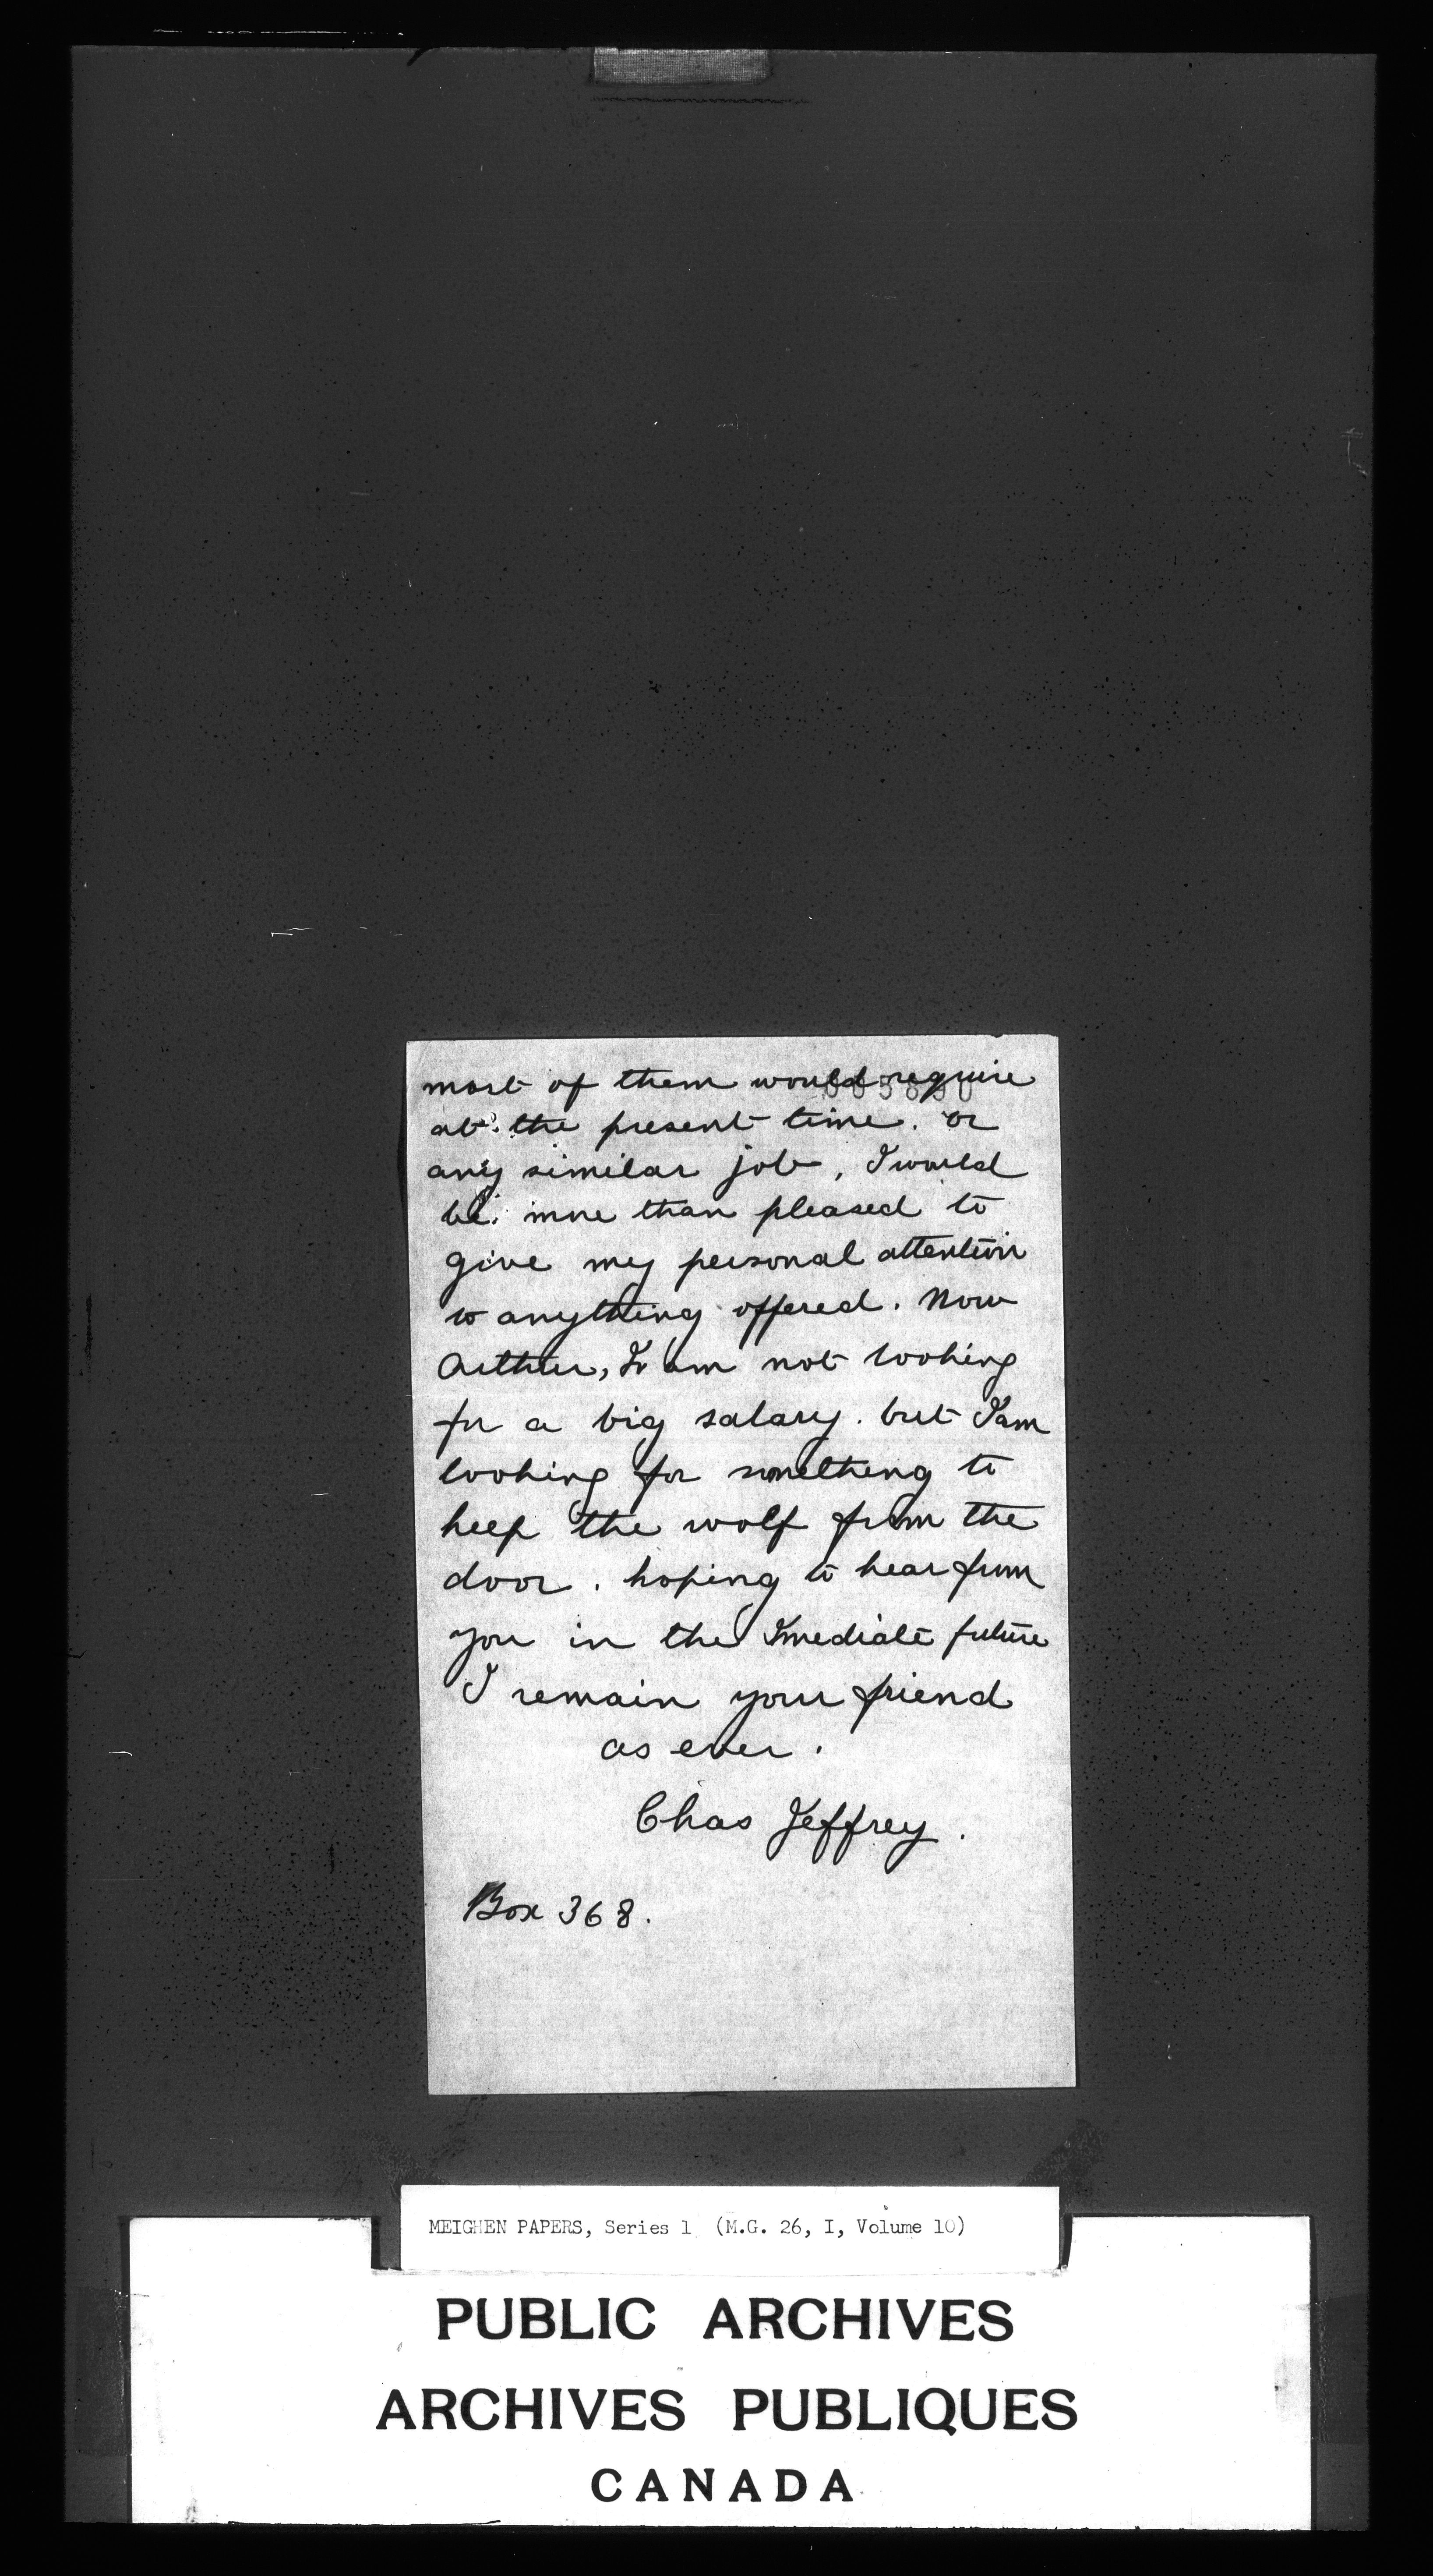 most of them would require
at the present time. or
any similar job, I would
be more than pleased to
give my personal attention
to anything offered. Now
Arthur, I am not looking
for a big salary. but I am
looking for something to
keep the wolf from the
door. hoping to hear from
you in the Imediate future
I remain your friend
as ever.
Chas Jeffrey.
Box 368.
MEIGHEN PAPERS, Series 1 (M.G. 26, I, Volume 10)
PUBLIC ARCHIVES
ARCHIVES PUBLIQUES
CANADA